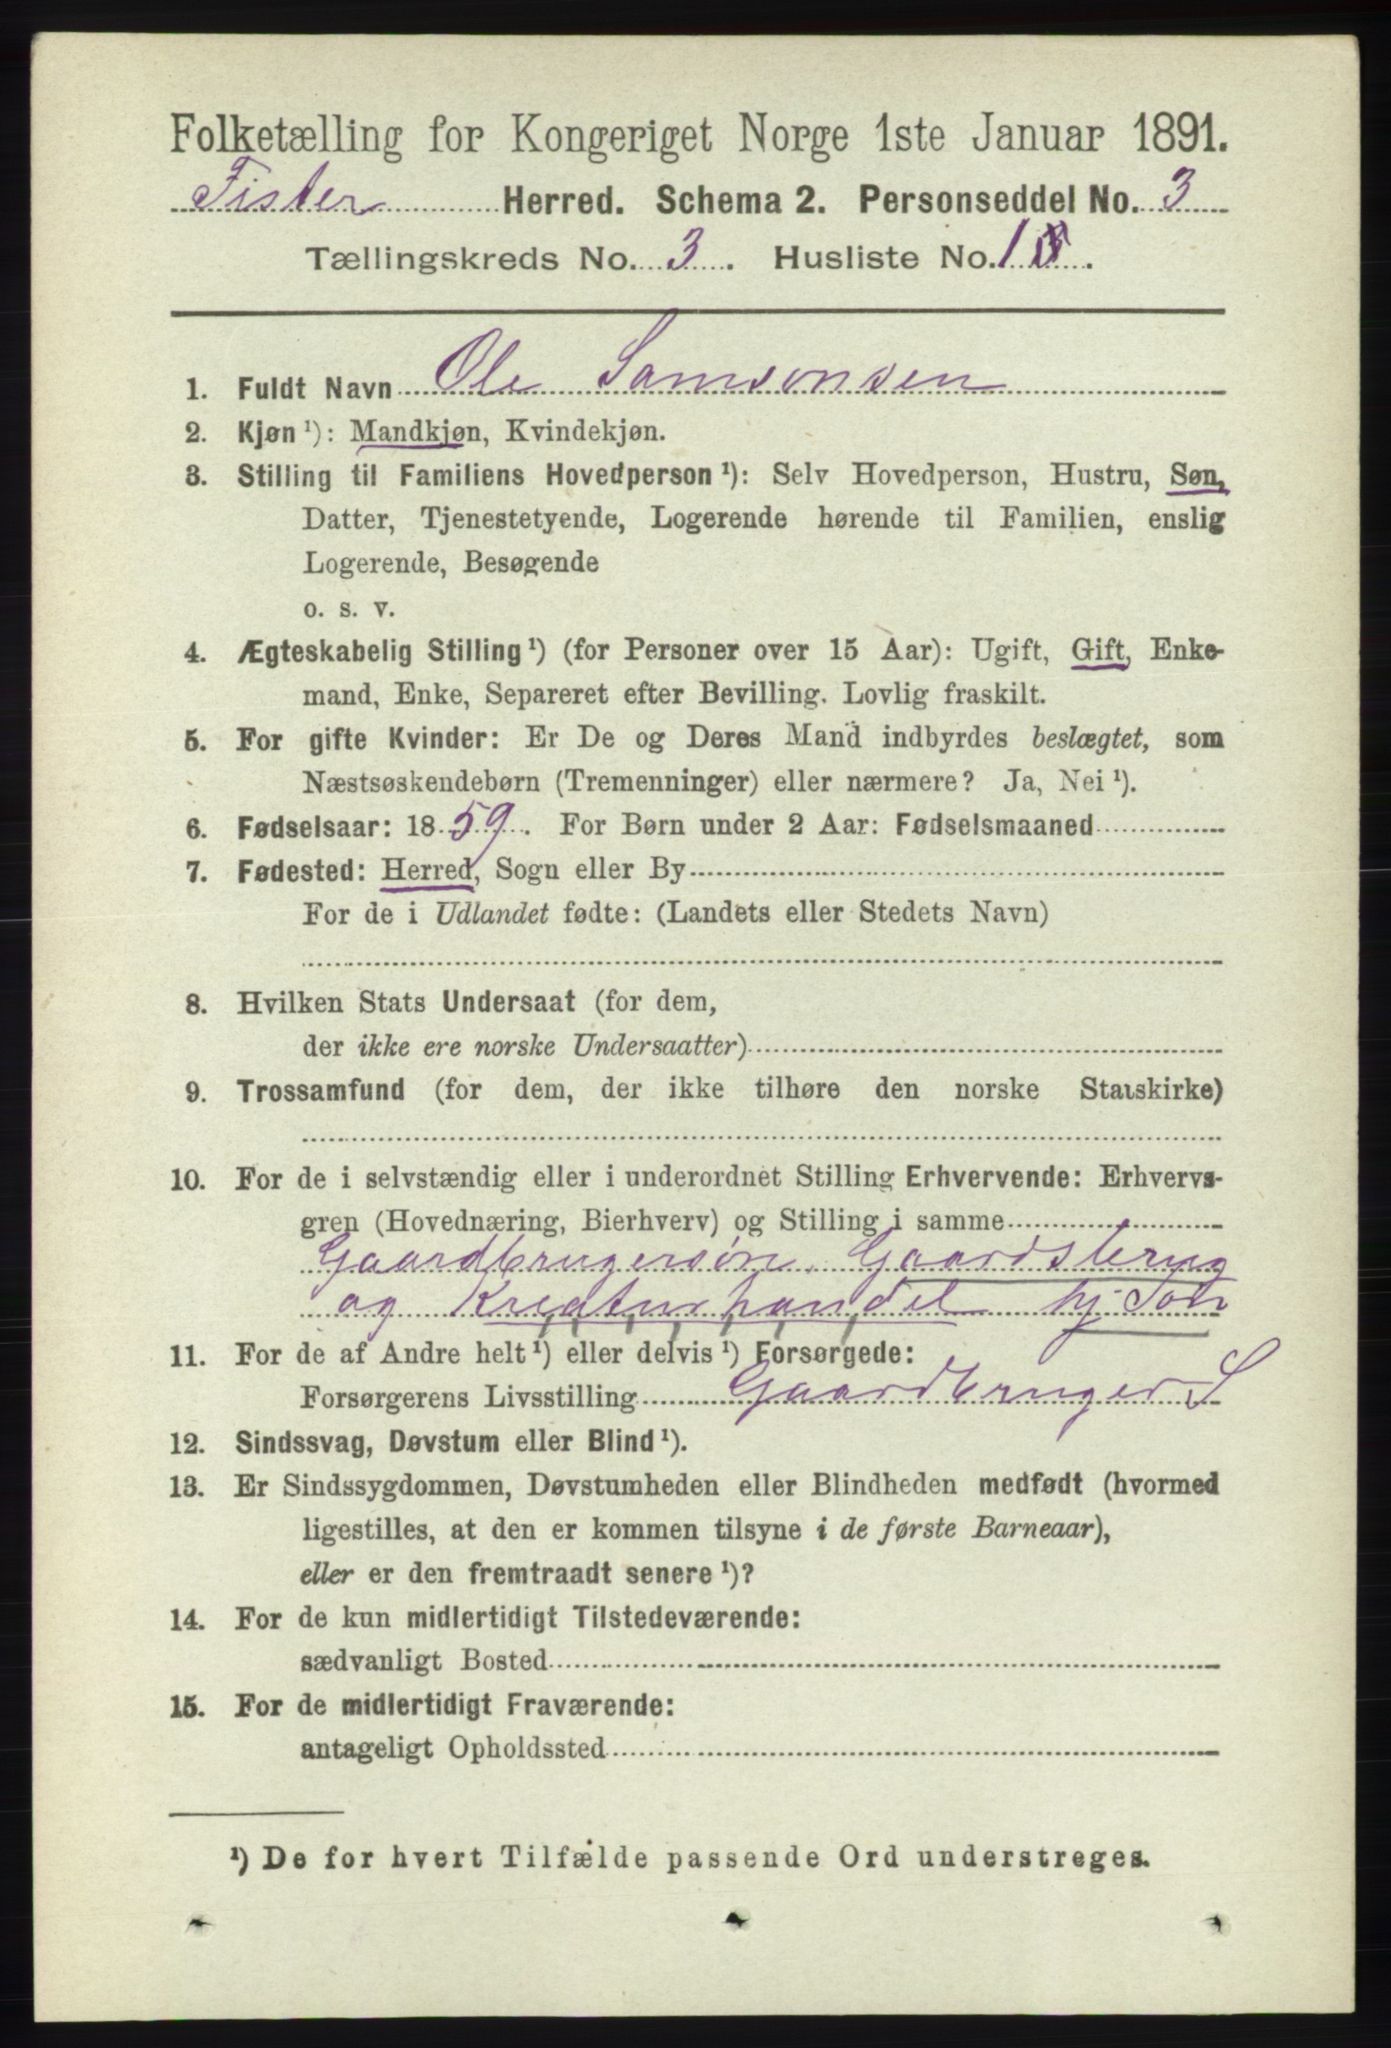 Folketælling for Kongeriget Norge 1ste Januar 1891.
Fister Herred. Schema 2. Personseddel No. 3
Tællingskreds No. 3. Husliste No. 1
1. Fuldt Navn Ole Samsonsen
2. Kjøn ¹): Mandkjøn, Kvindekjøn.
3. Stilling til Familiens Hovedperson ¹): Selv Hovedperson, Hustru, Søn,
Datter, Tjenestetyende, Logerende hørende til Familien, enslig
Logerende, Besøgende
o. s. v.
4. Ægteskabelig Stilling ¹) (for Personer over 15 Aar): Ugift, Gift, Enke-
mand, Enke, Separeret efter Bevilling. Lovlig fraskilt.
5. For gifte Kvinder: Er De og Deres Mand indbyrdes beslægtet, som
Næstsøskendebørn (Tremenninger) eller nærmere? Ja, Nei ¹).
6. Fødselsaar: 1859. For Børn under 2 Aar: Fødselsmaaned
7. Fødested: Herred, Sogn eller By
For de i Udlandet fødte: (Landets eller Stedets Navn)
8. Hvilken Stats Undersaat (for dem,
der ikke ere norske Undersaatter)
9. Trossamfund (for dem, der ikke tilhøre den norske Statskirke)
10. For de i selvstændig eller i underordnet Stilling Erhvervende: Erhvervs-
gren (Hovednæring, Bierhverv) og Stilling i samme
Gaardbrugersøn. Gaardsbrug
og Kreaturhandel hj. Søn
11. For de af Andre helt ¹) eller delvis ¹) Forsørgede:
Forsørgerens Livsstilling Gaardbruger S
12. Sindssvag, Døvstum eller Blind ¹).
13. Er Sindssygdommen, Døvstumheden eller Blindheden medfødt (hvormed
ligestilles, at den er kommen tilsyne i de første Barneaar),
eller er den fremtraadt senere ¹)?
14. For de kun midlertidigt Tilstedeværende:
sædvanligt Bosted
15. For de midlertidigt Fraværende:
antageligt Opholdssted
¹) De for hvert Tilfælde passende Ord understreges.